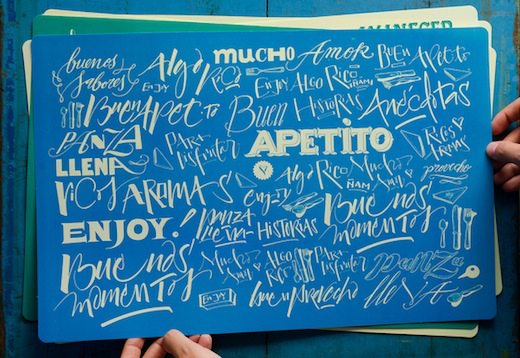 AMANECER
buenos Sabores
ENJOY
Algo Rico
mucho Amor
Buen Apetito
ENJOY
Algo Rico
ÑAM!
Buen Historias
Anécdotas
Buen Apetito
PANZA LLENA
Para disfrutar
APETITO
Ricos Aromas
provecho
Ricos AROMAS
enjoy
Algo Rico
ÑAM
Mucho
ENJOY!
panza llena
HISTORIAS
Buenos momentos
Buenos momentos
Mucho
Algo Rico
Para disfrutar
panza llena
ENJOY
buen provecho